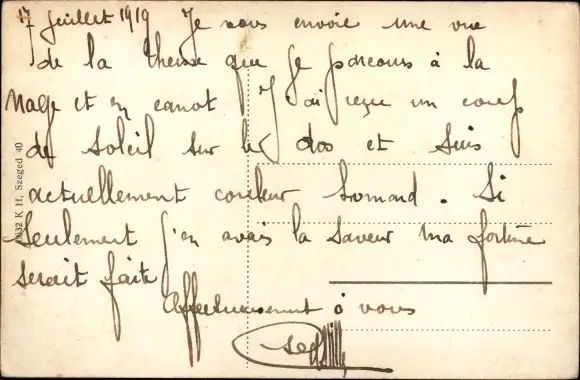 17 juillet 1919 Je vous envoie une vue
de la theisse que je parcours à la
Nage et en canot J'ai reçu un coup
de soleil sur le dos et suis
actuellement couleur homard. Si
seulement j'en avais la saveur ma fortune
serait faite
Affectueusement à vous
1032 K H. Szeged 40